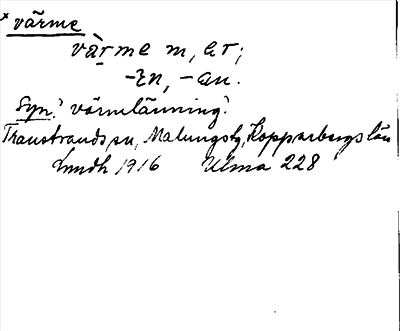 × värme
värme m, er;
-en, -an.
Syn.? värmlänning?
Transtrands sn, Malungs tg, Kopparbergs län
Lundh 1916 Ulma 228